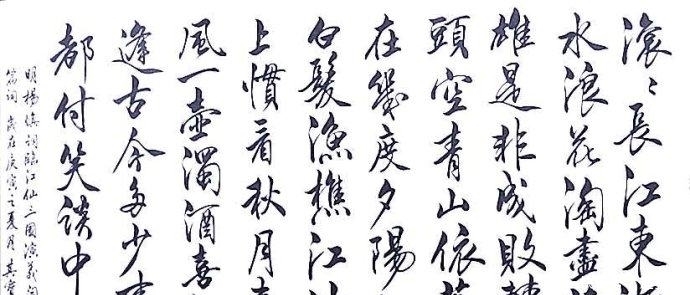 滾〻長江東
水浪花淘盡
雄是非成敗
頭空青山依
在幾度夕陽
白髮漁樵江
上慣看秋月
風一壺濁酒喜
逢古今多少
都付笑談中
明楊慎詞臨江仙三國演義
歲在庚寅之夏月